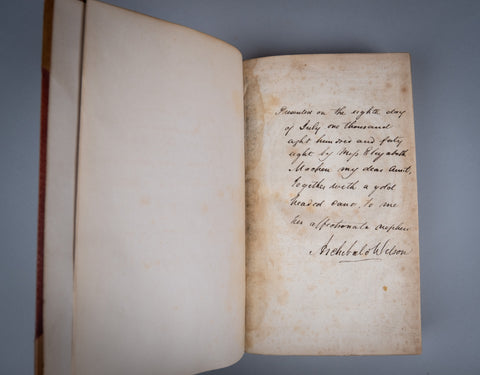 Presented on the eighth day
of July one thousand
eight hundred and forty
eight by Miss Elizabeth
my dear Aunt,
together with a gold
headed cane, to me
her affectionate nephew
Archibald Wilson